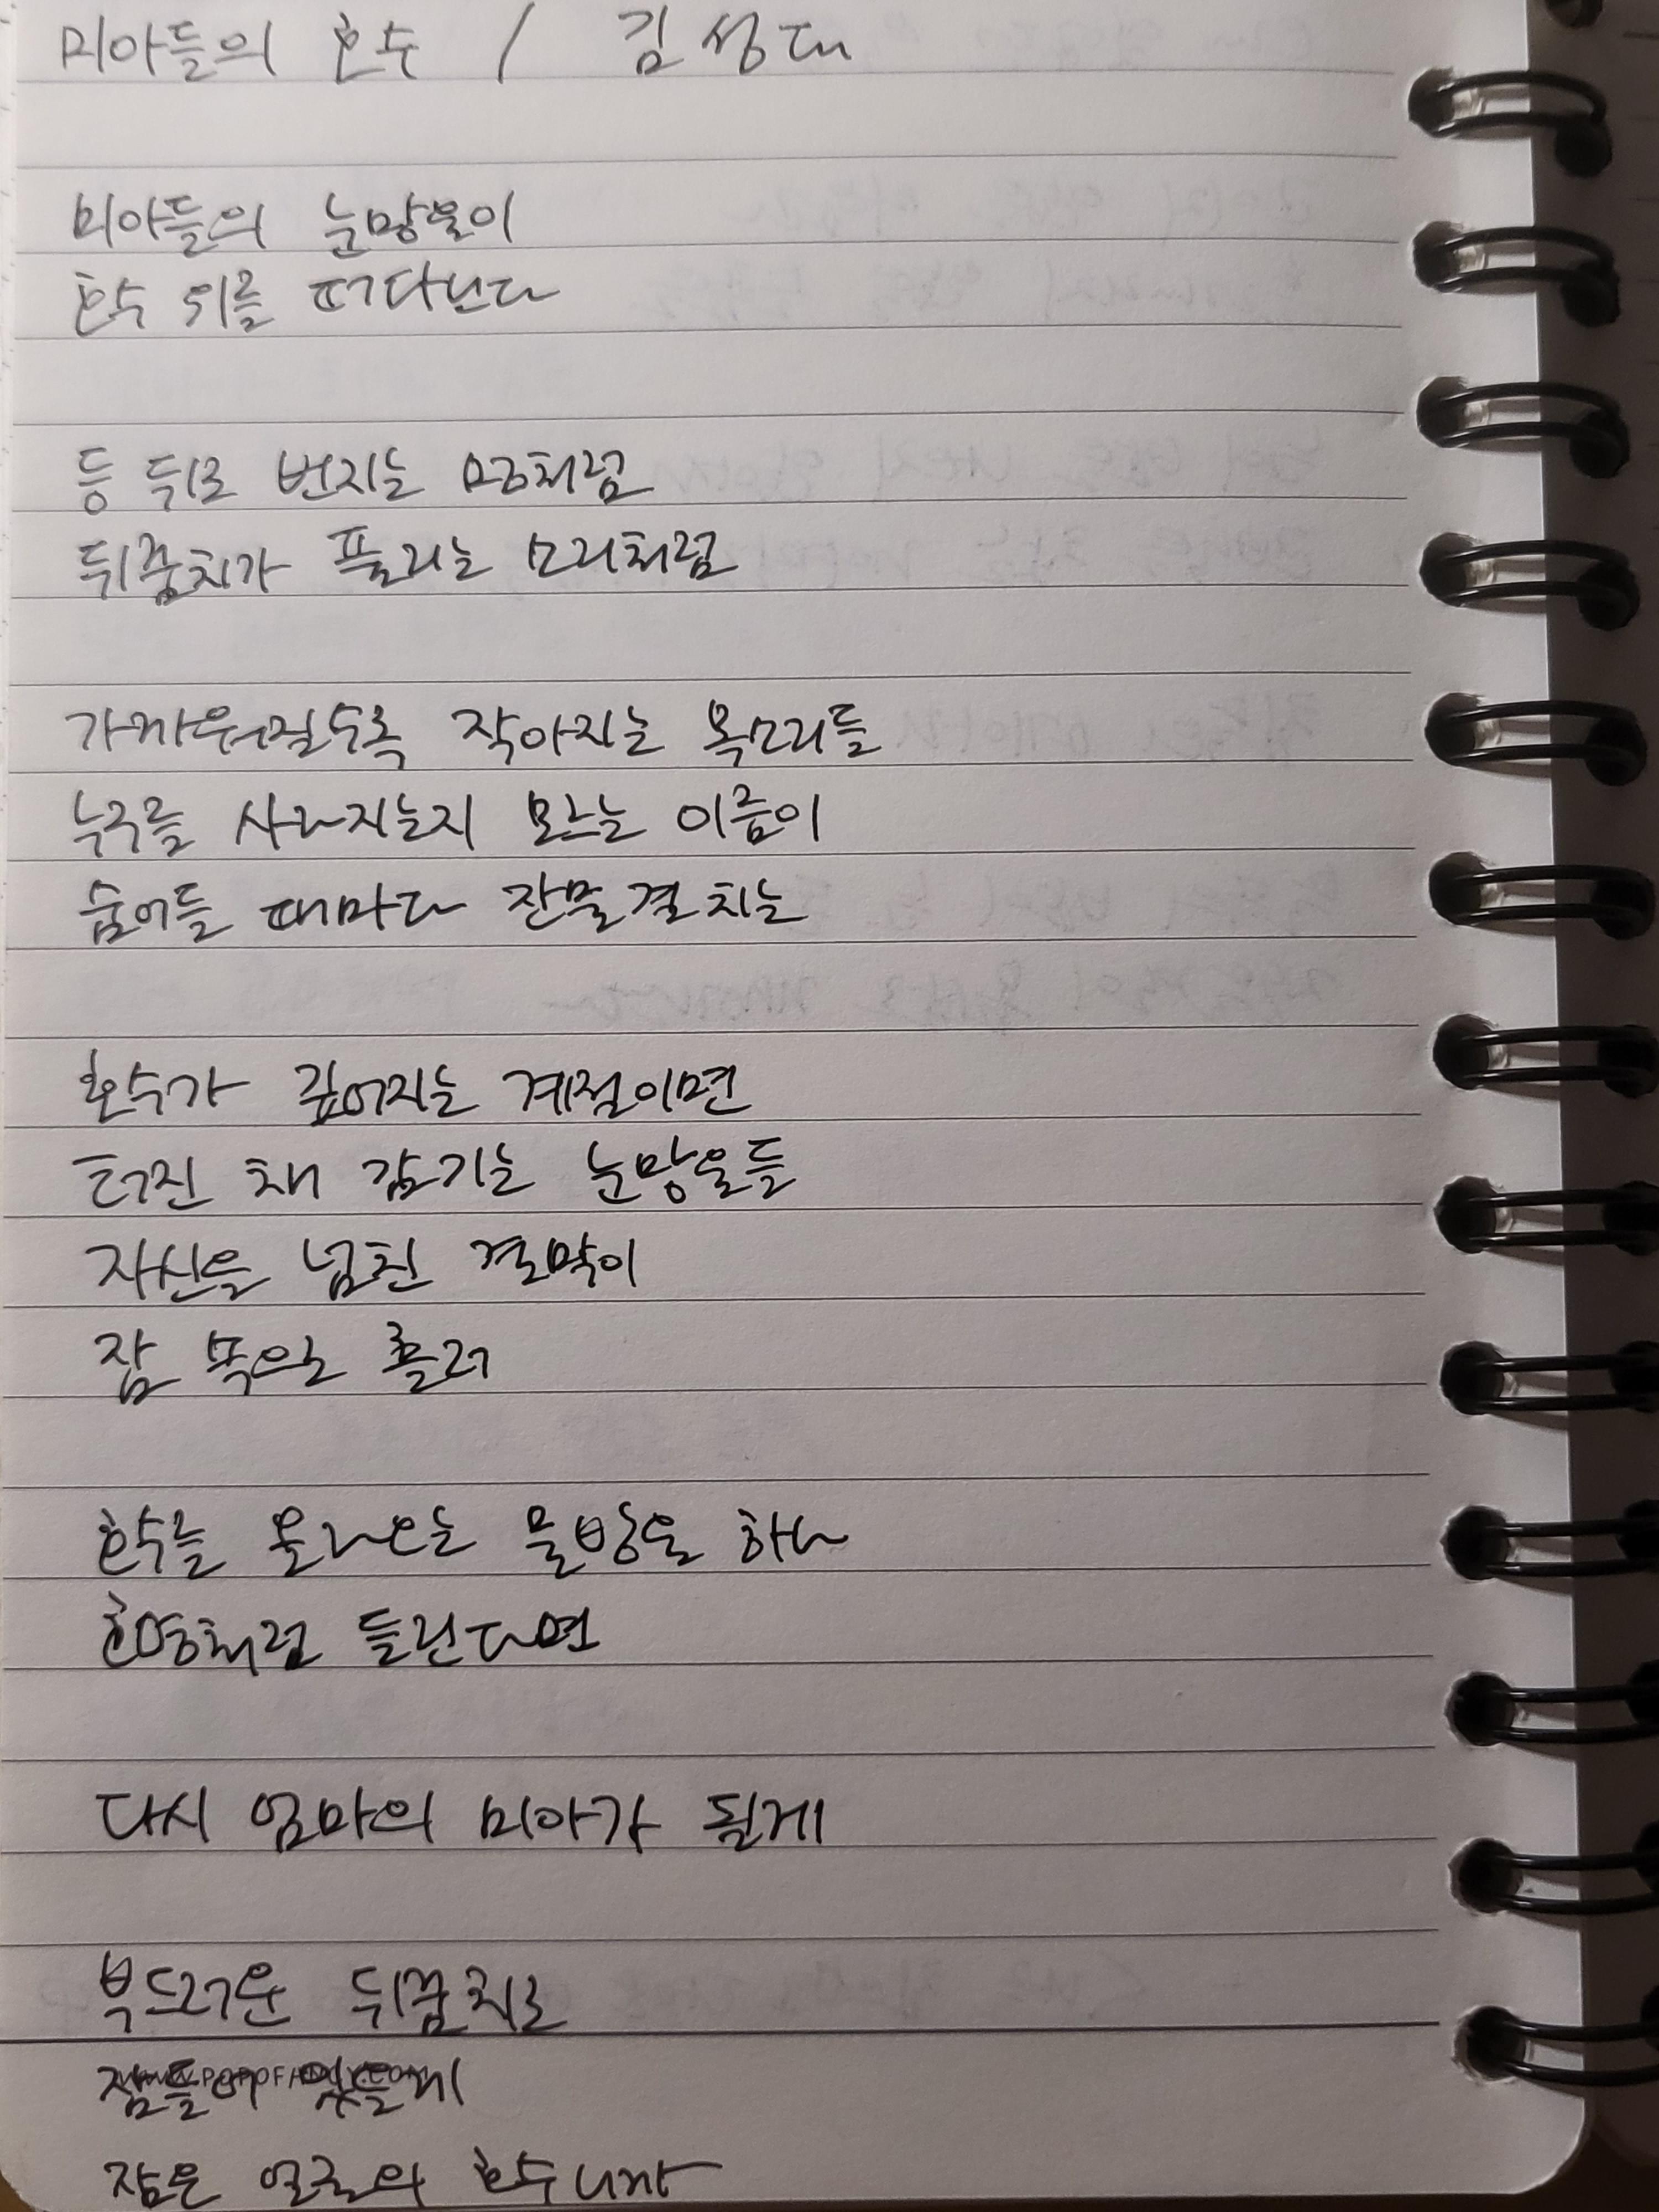 미아들의 호수 / 김성대
미아들의 눈망울이
호수 위를 떠다닌다
등 뒤로 번지는 모금처럼
뒤꿈치가 풀리는 모리처럼
가까워질수록 작아지는 목소리들
누구를 사라지는지 모르는 이름이
숨어들 때마다 잔물결 치는
호수가 깊어지는 계절이면
터진 채 감기는 눈망울들
자신을 넘친 결막이
잠 쪽으로 흘러
호수를 올라오는 물방울 하나
환영처럼 들린다면
다시 엄마의 미아가 될게
부드러운 뒤꿈치로
잠들어 있을게
잠은 얼굴의 호수니까